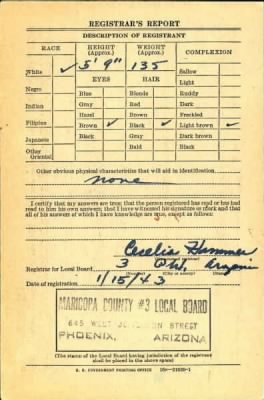 REGISTRAR'S REPORT
DESCRIPTION OF REGISTRANT
RACE
HEIGHT (Approx.)
WEIGHT (Approx.)
COMPLEXION
White ✓
5' 9"
135
Sallow
Light
EYES
HAIR
Ruddy
Negro
Blue
Blonde
Dark
Indian
Gray
Red
Freckled
Hazel
Brown
Light brown ✓
Filipino
Brown ✓
Black ✓
Dark brown
Japanese
Black
Gray
Black
Other Oriental
Bald
Other obvious physical characteristics that will aid in identification
none
I certify that my answers are true; that the person registered has read or has had
read to him his own answers; that I have witnessed his signature or mark and that
all of his answers of which I have knowledge are true, except as follows:
Cecelia Hammer
Registrar for Local Board
3
Date of registration 1/15/43
MARICOPA COUNTY #3 LOCAL BOARD
645 WEST JEFFERSON STREET
PHOENIX, ARIZONA
(The stamp of the Local Board having jurisdiction of the registrant
shall be placed in the above space)
U. S. GOVERNMENT PRINTING OFFICE 16—21630-1